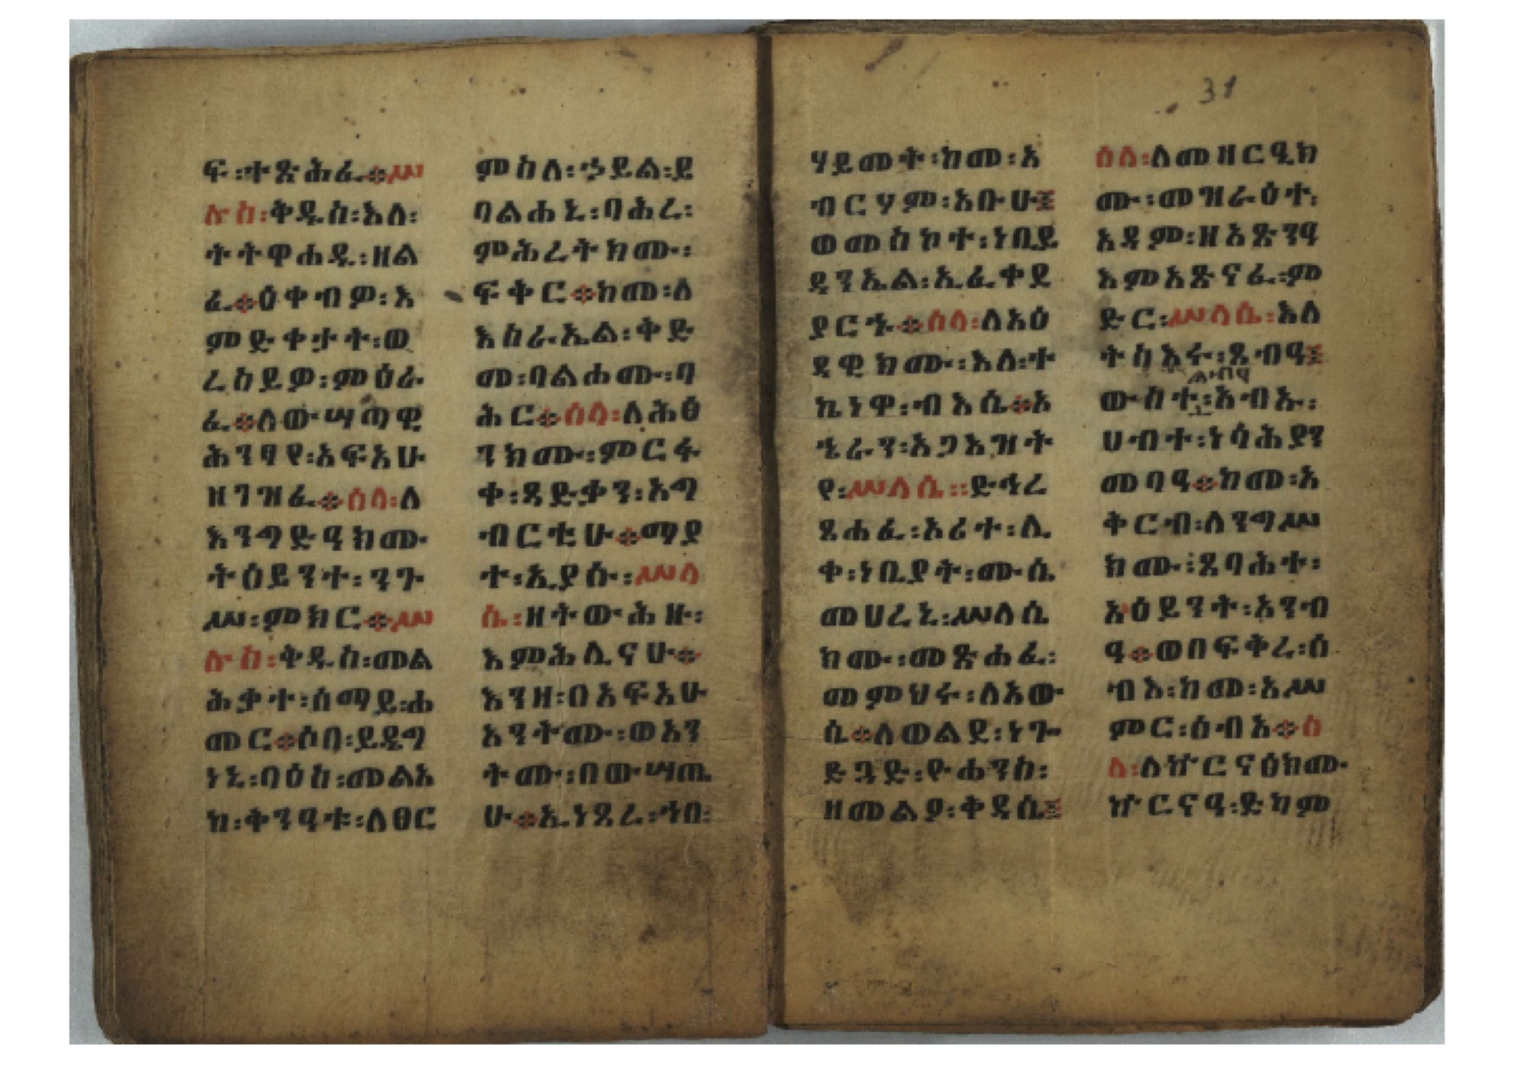 ፍ፡ተጽሕፈ፨ሥ
ሉስ፡ቅዱስ፡እለ፡
ትትዋሐዱ፡ዘል
ፈ፨ዕቀብዎ፡እ
ምድቀታት፡ወ
ረስይዎ፡ምዕራ
ፈ፨ለውሣጣዊ
ሕንፃየ፡አፍአሁ
ዘገዝፈ፨ሰላ፡ለ
እንግድዓክሙ
ትዕይንተ፡ንጉ
ሥ፡ምክር፨ሥ
ሉስ፡ቅዱስ፡መል
ሕቃተ፡ሰማይ፡ሐ
መር፨ሶበ፡ይዴግ
ነኒ፡ባዕስ፡መልአ
ከ፡ቅንዓቱ፡ለፀር
ምስለ፡ኃይል፡ደ
ባልሐኒ፡ባሕረ፡
ምሕረትክሙ፡
ፍቅር፨ከመ፡ለ
እስራኤል፡ቅድ
መ፡ባልሐሙ፡ባ
ሕር፨ሰላ፡ለሕፅ
ንክሙ፡ምርፋ
ቀ፡ጻድቃን፡አግ
ብርቲሁ፨ማያ
ተ፡ኢያሱ፡ሥላ
ሴ፡ዘትውሕዙ፡
እምሕሊናሁ፨
እንዘ፡በአፍአሁ
አንትሙ፡ወአን
ትሙ፡በውሣጤ
ሁ፨ኢነጸረ፡ኀበ፡
ሃይመት፡ከመ፡አ
ብርሃም፡አቡሁ፤
ወመስኮተ፡ነቢይ
ዳንኤል፡ኢፈቀደ
ያርኁ፨ሰላ፡ለአዕ
ዳዊክሙ፡እለ፡ተ
ኬነዋ፡ብእሴ፨አ
ኄራን፡አጋእዝት
የ፡ሥላሴ፡፡ድኅረ
ጸሐፈ፡አሪተ፡ሊ
ቀ፡ነቢያት፡ሙሴ
መሀረኒ፡ሥላሴ
ክሙ፡መጽሐፈ፡
መምህሩ፡ለአው
ሴ፨ለወልደ፡ነጐ
ድጓድ፡ዮሐንስ፡
ዘመልዖ፡ቅዳሴ፤
ሰላ፡ለመዘርዒክ
ሙ፡መዝራዕተ፡
አዳም፡ዘአጽንዓ
እምአጽናፈ፡ም
ድር፡ሥላሴ፡እለ
ትስእሩ፡ጼብዓ፤
ውስተ፡አብኡ፡
ሀብተ፡ነሳሕያን
መባዓ፨ከመ፡አ
ቅርብ፡ለንግሥ
ክሙ፡ጸባሕተ፡
አዕይንት፡አንብ
ዓ፨ወበፍቅረ፡ሰ
ብእ፡ከመ፡አሥ
ምር፡ሰብአ፨ሰ
ላ፡ለኵርናዕክሙ
ኵርናዓ፡ድካም